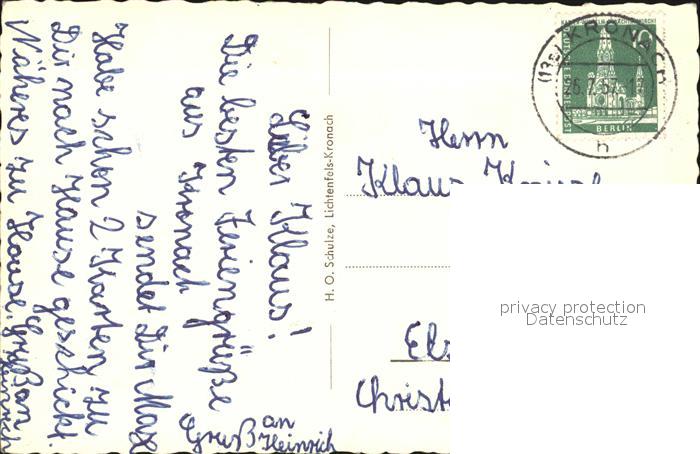 Lieber Klaus!
Die besten Feriengrüße
aus Kronach
sendet Dir Max
Habe schon 2 Karten zu
Dir nach Hause geschickt.
Näheres zu Hause. Gruß an
Heinrich
Gruß an
Heinrich
H. O. Schulze, Lichtenfels-Kronach
KRONACH
h
10
BERLIN
Herrn
Klaus
Christ
privacy protection
Datenschutz